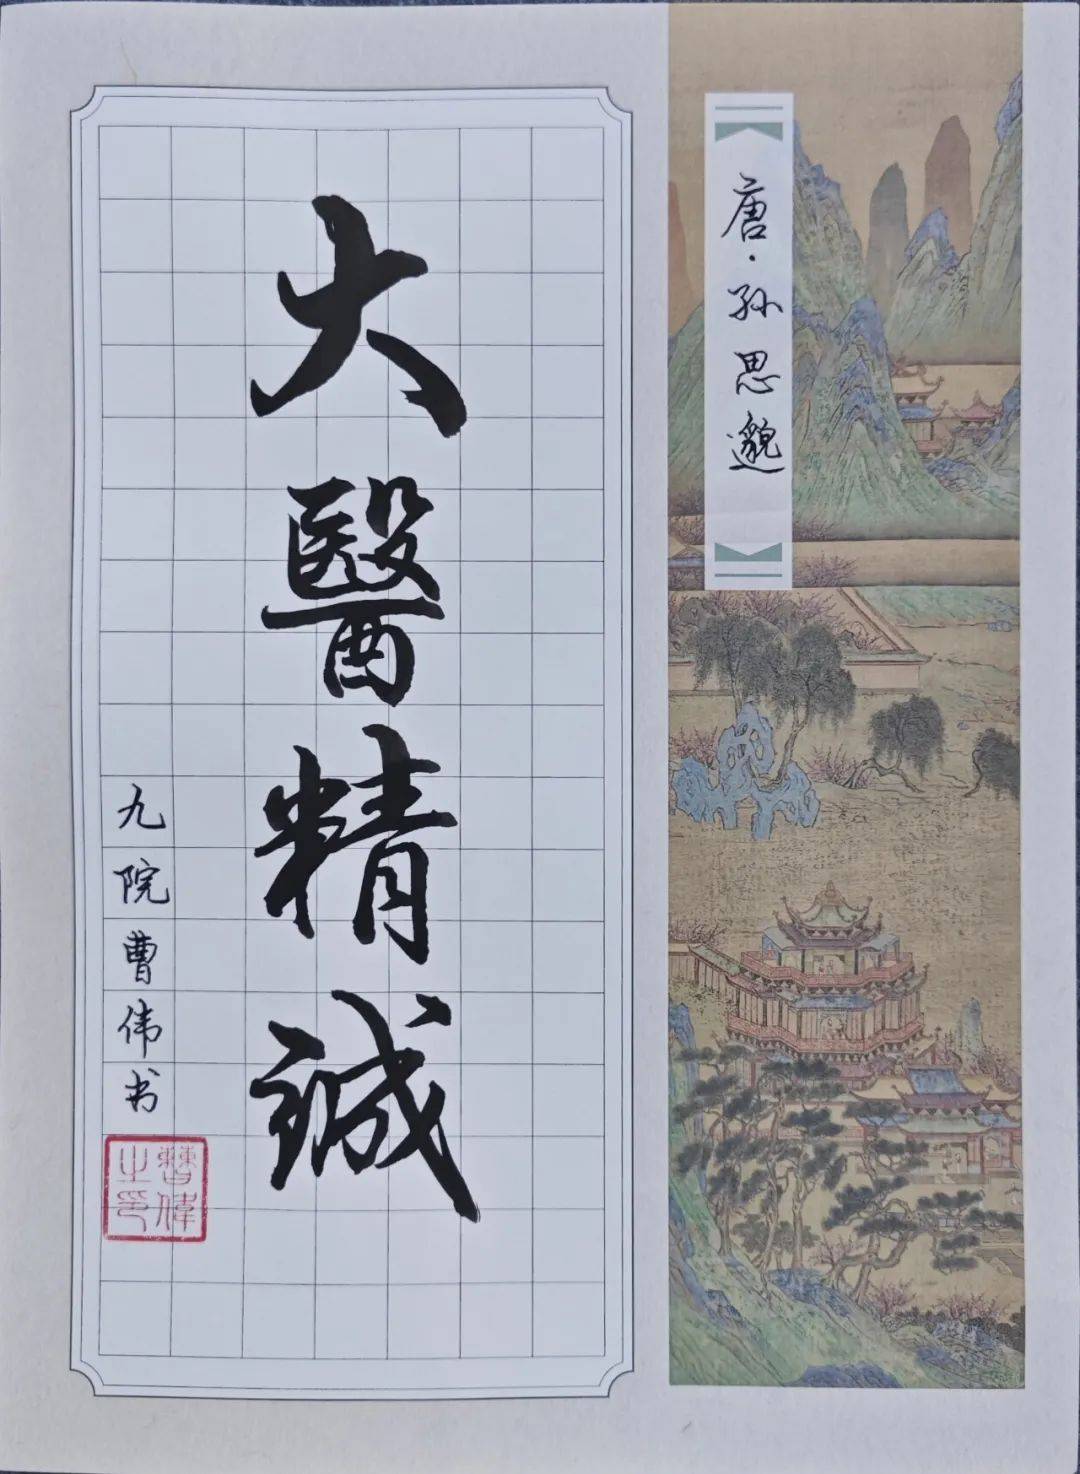 唐·孙思邈
大醫精誠
九院曹伟书
曹偉之印